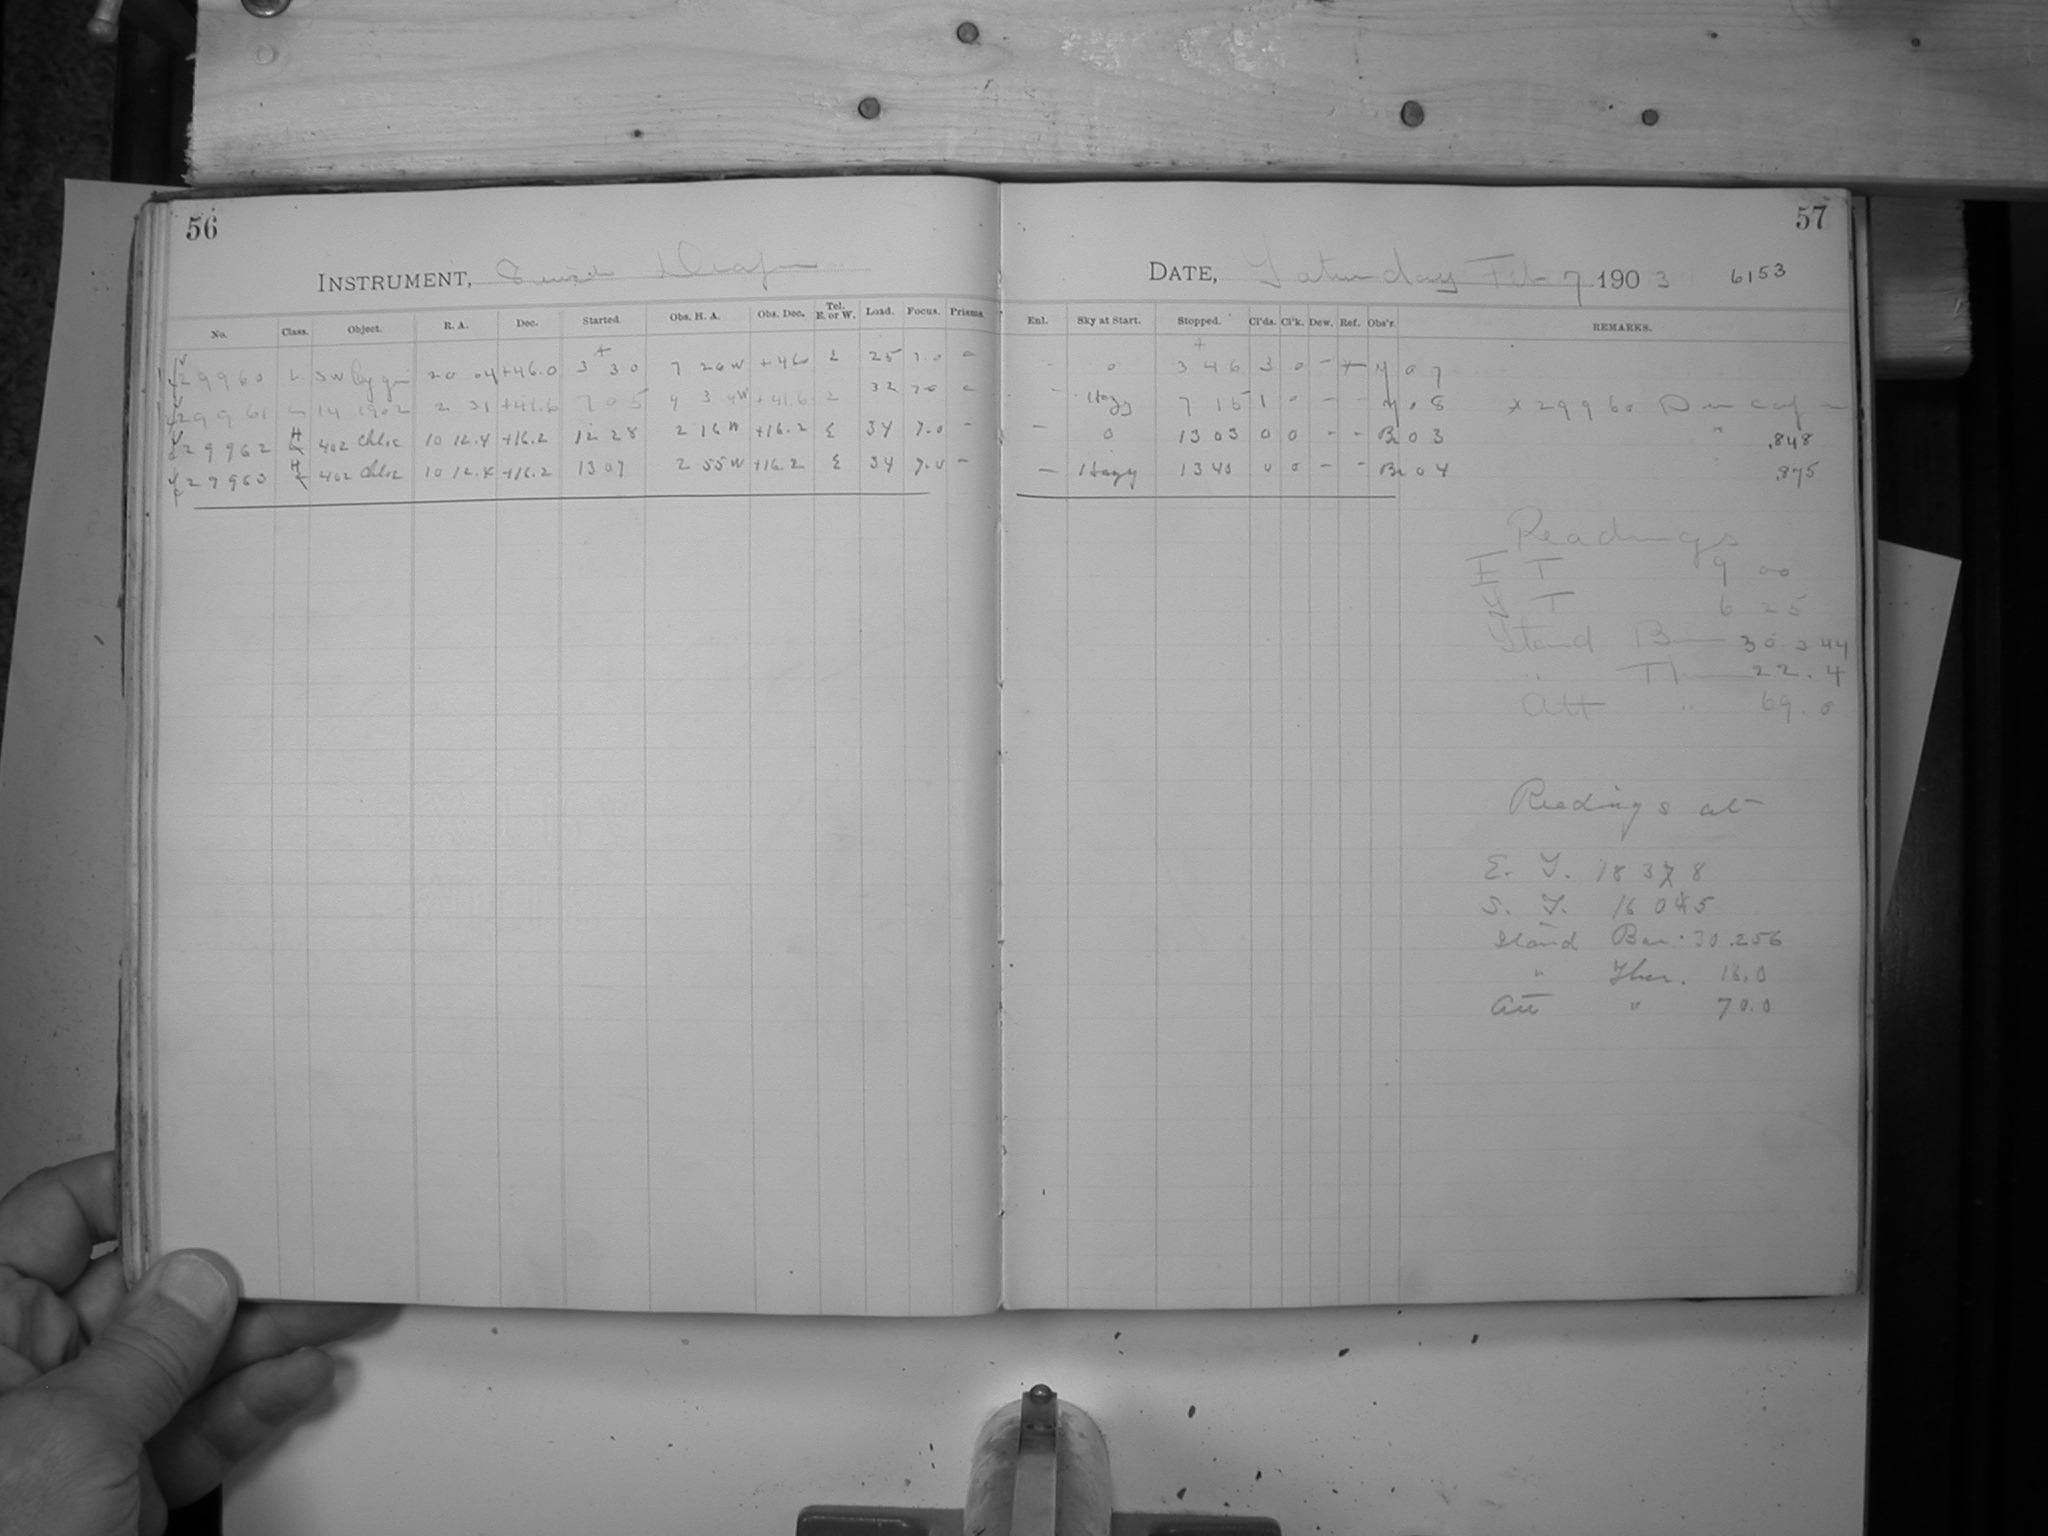 56
INSTRUMENT, Draper
No. Class. Object. R. A. Dec. Started. Obs. H. A. Obs. Dec. Tel. E. or W. Load. Focus. Prisms.
29960 L SW Cygni 20 04 +46.0 3 30 7 26 W +46.0 E 25 7.0
29961 L 14 1902 2 31 +41.6 7 05 4 34 W +41.6 E 32 7.0
29962 H 402 Chloe 10 12.4 +16.2 12 28 2 16 W +16.2 E 34 7.0 –
29963 H 402 Chloe 10 12.4 +16.2 13 07 2 55 W +16.2 E 34 7.0 –
57
DATE, Saturday Feb 7 1903 6153
Enl. Sky at Start. Stopped. Cl'ds. Cl'k. Dew. Ref. Obs'r. REMARKS.
– 0 3 46 3 0 – + M 07
– Hazy 7 15 1 0 – – M 08 * 29960
– 0 13 03 0 0 – – Br 03 " .848
– Hazy 13 40 0 0 – – Br 04 .875
Readings
E T 9 00
S T 6 25
Stand B 30.244
" Th 22.4
Att " 69.0
Readings at
E. T. 18 37 8
S. T. 16 04 5
Stand Bar. 30.256
" Ther. 18.0
Att " 70.0